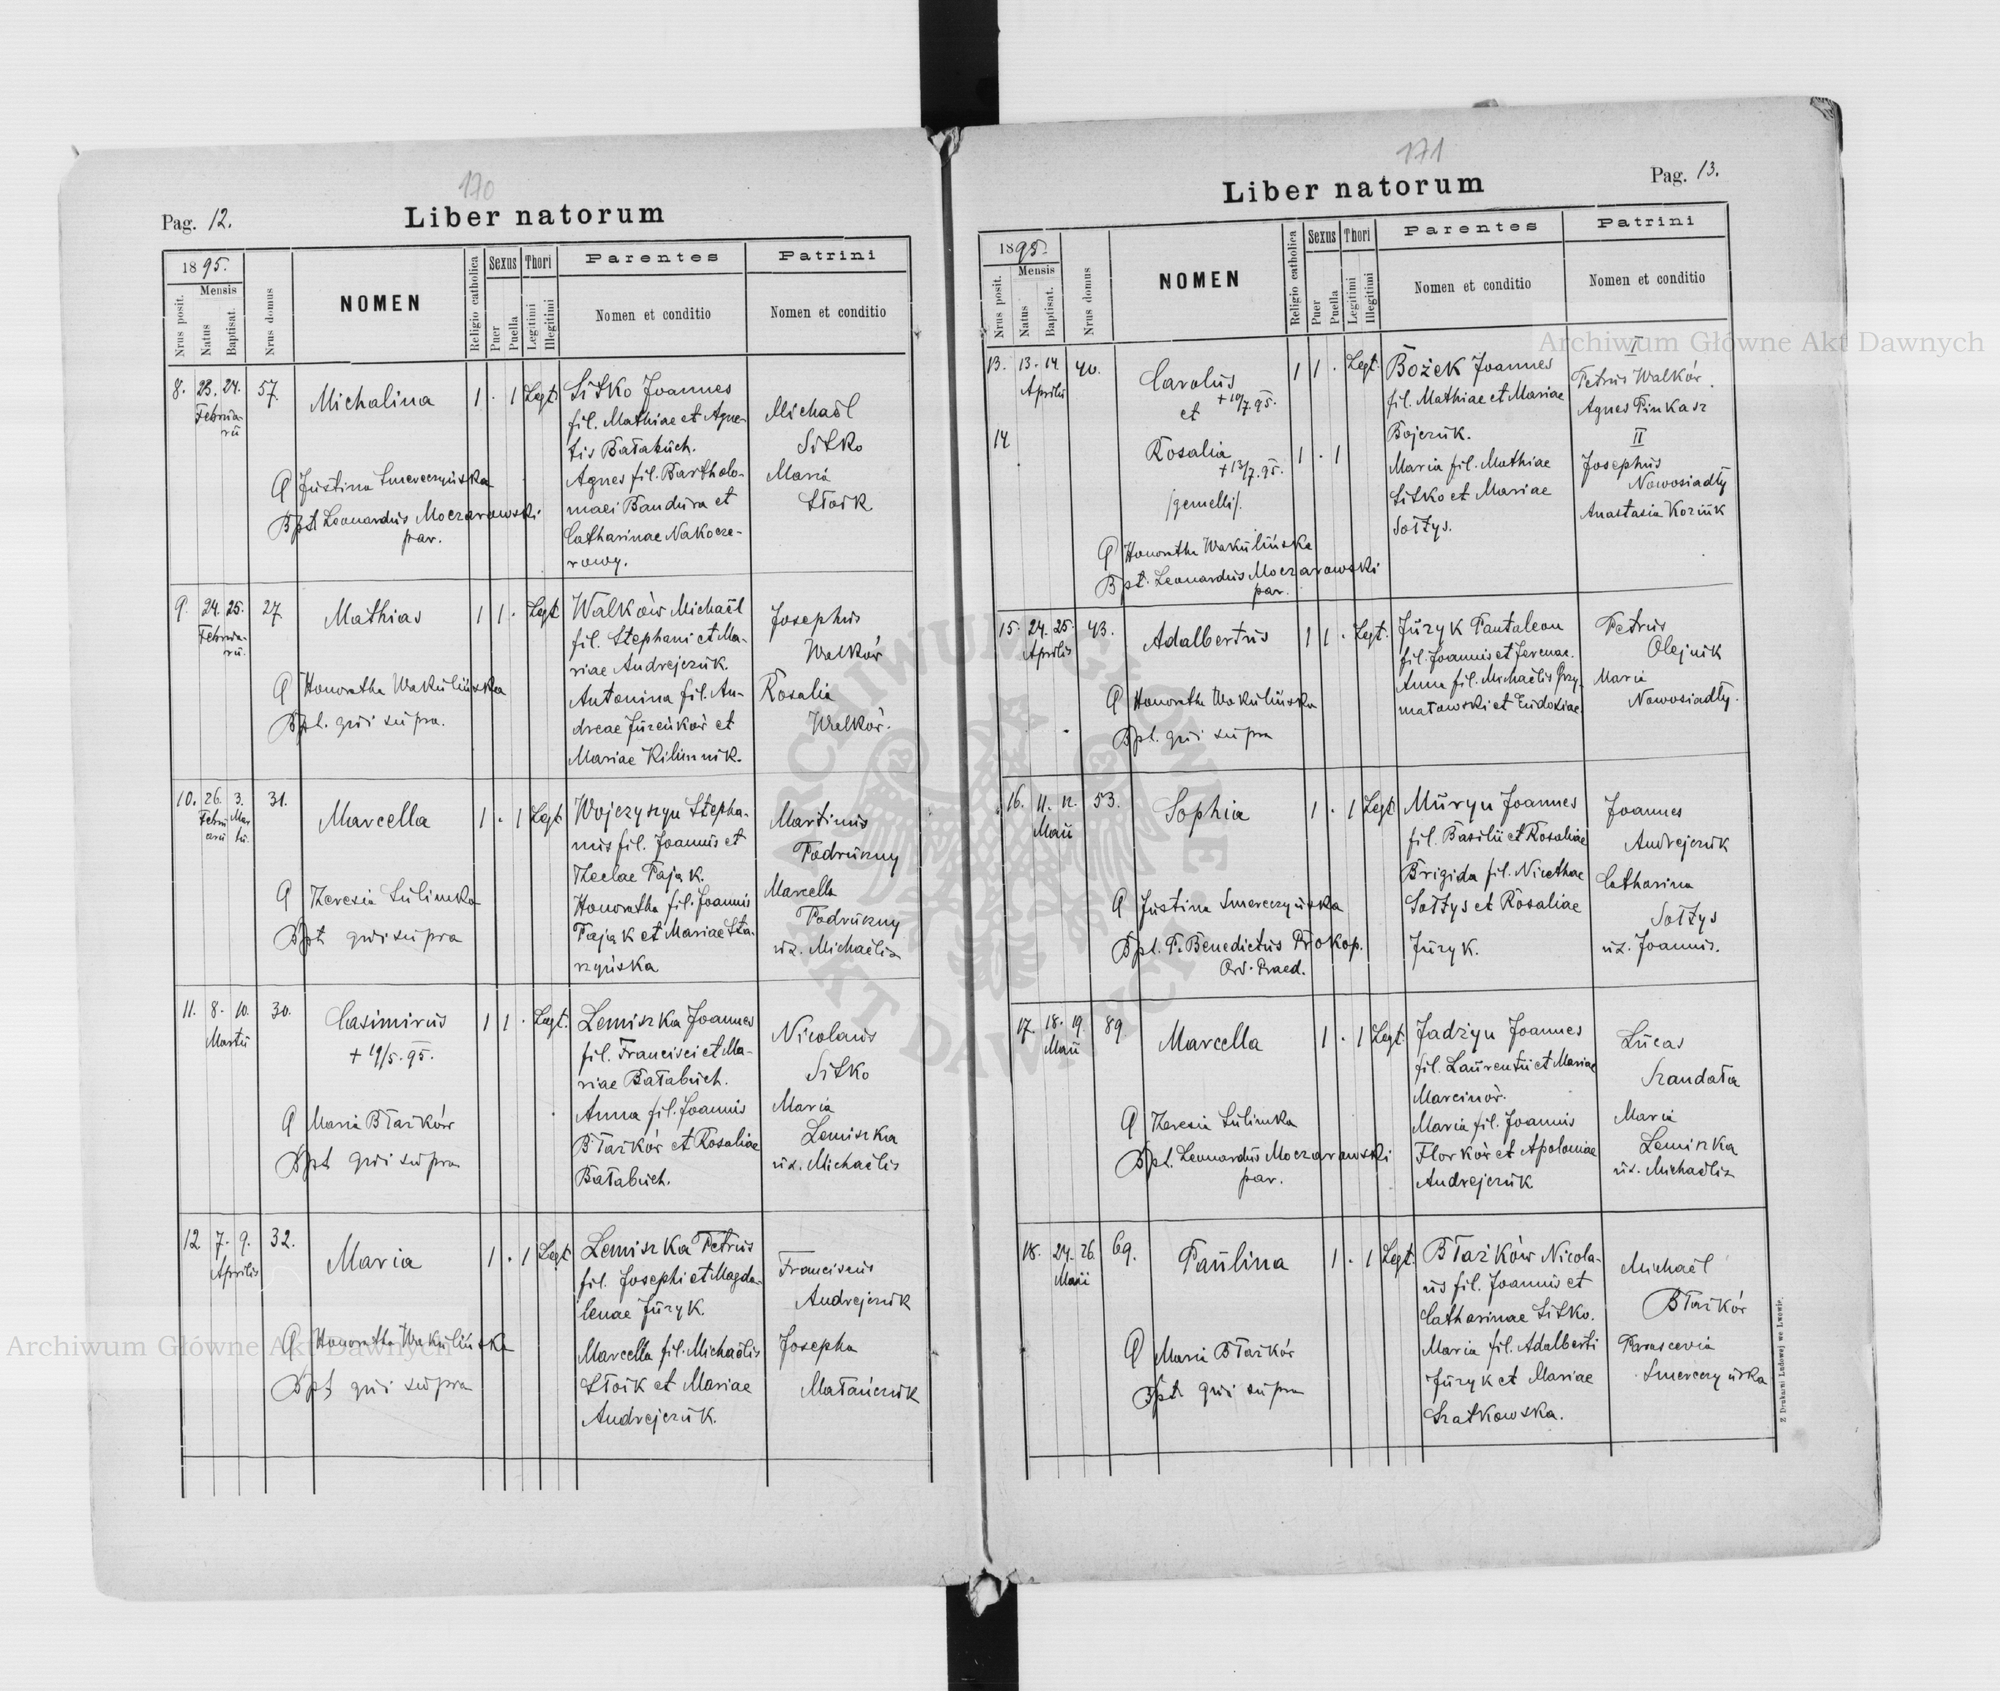 170
Pag. 12.
Liber natorum
1895.
Mensis
Nrus posit.
Natus
Baptisat.
Nrus domus
NOMEN
Religio catholica
Sexus
Puer
Puella
Thori
Legitimi
Illegitimi
Parentes
Nomen et conditio
Patrini
Nomen et conditio
8. 23. 24. 57. Michalina 1 . 1 Legt.
Februa-
rii
Sitko Joannes
fil. Mathiae et Agne-
tis Bałabuch.
Agnes fil. Bartholo-
maei Bandura et
Catharinae Nakocze-
rowy.
Michaël
Sitko
Maria
Stoik
Justina Smereczyńska
Bpt. Leonardus Moczarowski
par.
9. 24. 25. 27. Mathias 1 1 . Legt
Februa-
rii.
Walków Michaël
fil. Stephani et Ma-
riae Andrejczuk.
Antonina fil. An-
dreae Jureńków et
Mariae Kilimnik.
Josephus
Walków
Rosalia
Walków.
Honoratha Wakulińska
Bpt. qui supra.
10. 26. 3. 31. Marcella 1 . 1 Legt
Febru
arii
Mar
tii.
Wojczyszyn Stepha-
nus fil. Joannis et
Theclae Pająk.
Honoratha fil. Joannis
Pająk et Mariae Sta-
rzyńska
Martinus
Podrużny
Marcella
Podrużny
ux. Michaëlis
Theresia Sulimka
Bpt qui supra
11. 8. 10. 30. Casimirus 1 1 . Legt.
Martii
+ 19/5. 95.
Lemiszka Joannes
fil. Francisci et Ma-
riae Bałabuch.
Anna fil. Joannis
Błażków et Rosaliae
Bałabuch.
Nicolaus
Sitko
Maria
Lemiszka
ux. Michaëlis
Maria Błażków
Bpt qui supra
12 7. 9. 32. Maria 1 . 1 Legt
Aprilis
Lemiszka Petrus
fil. Josephi et Magda-
lenae Juryk.
Marcella fil. Michaëlis
Stoik et Mariae
Andrejczuk.
Franciscus
Andrejczuk
Josepha
Matańczuk
Honoratha Wakulińska
Bpt qui supra
171
Liber natorum
Pag. 13.
1895.
Mensis
Nrus posit.
Natus
Baptisat.
Nrus domus
NOMEN
Religio catholica
Sexus
Puer
Puella
Thori
Legitimi
Illegitimi
Parentes
Nomen et conditio
Patrini
Nomen et conditio
13. 13. 14 40. Carolus 1 1 . Legt.
Aprilis
+ 10/7. 95.
et
14 Rosalia 1 . 1
+ 13/7. 95.
/gemelli/.
Bożek Joannes
fil. Mathiae et Mariae
Bojczuk.
Maria fil. Mathiae
Sitko et Mariae
Sołtys.
I
Petrus Walków.
Agnes Pinkasz
II
Josephus
Nowosiadły
Anastasia Koziuk
Honoratha Wakulińska
Bpt. Leonardus Moczarowski
par.
15. 24. 25. 43. Adalbertus 1 1 . Legt.
Aprilis
Juzyk Pantaleon
fil. Joannis et
Anna fil. Michaëlis Grzy-
małowski et Eudoxiae.
Petrus
Olejnik
Maria
Nowosiadły.
Honoratha Wakulińska
Bpt. qui supra
16. 11. 12. 53. Sophia 1 . 1 Legt
Maii
Muryn Joannes
fil. Basilii et Rosaliae
Brigida fil. Nicethae
Sołtys et Rosaliae
Juzyk.
Joannes
Andrejczuk
Catharina
Sołtys
ux. Joannis.
Justina Smereczyńska
Bpt. P. Benedictus Prokop.
Ord. Praed.
17. 18. 19. 89 Marcella 1 . 1 Legt.
Maii
Jadżyn Joannes
fil. Laurentii et Mariae
Marcinów.
Maria fil. Joannis
Florków et Apoloniae
Andrejczuk
Lucas
Szandała
Maria
Lemiszka
ux. Michaëlis
Theresia Sulimka
Bpt. Leonardus Moczarowski
par.
18. 24. 26. 69. Paulina 1 . 1 Legt.
Maii
Błażków Nicola-
us fil. Joannis et
Catharinae Sitko.
Maria fil. Adalberti
Juzyk et Mariae
Szatkowska.
Michaël
Błażków
Parascevia
Smereczyńska
Maria Błażków
Bpt qui supra
Z Drukarni Ludowej we Lwowie.
Archiwum Główne Akt Dawnych
Archiwum Główne Akt Dawnych
ARCHIWUM GŁÓWNE AKT DAWNYCH